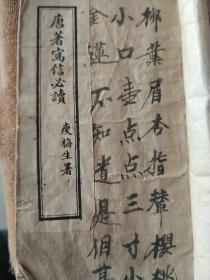 唐著寫信必讀
瘦梅生署
柳葉眉杏指聲櫻桃
小口壺点点三寸小
金蓮不知道是俏